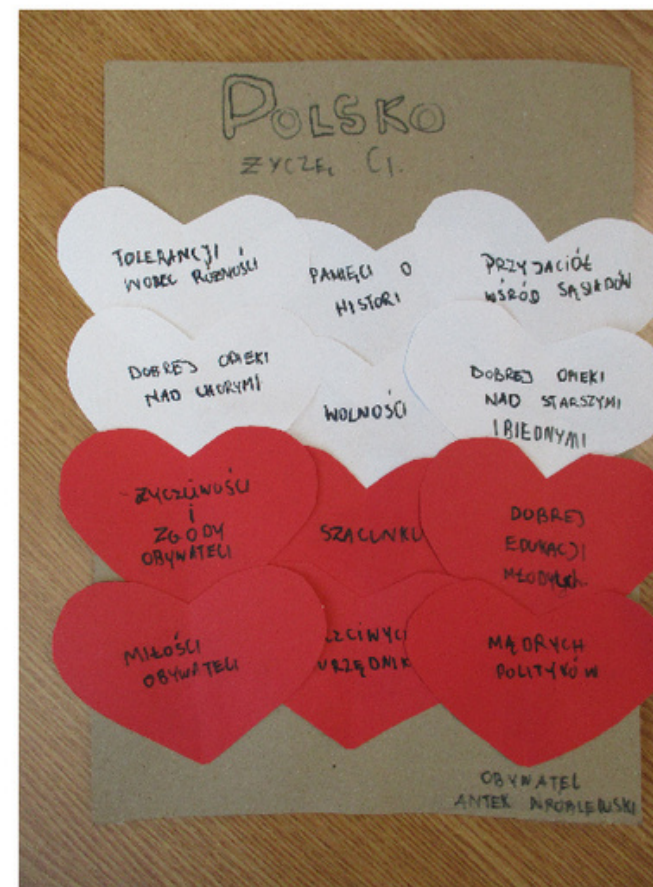 POLSKO
ŻYCZĘ CI.
TOLERANCJI I
WOBEC RÓŻNOŚCI
PAMIĘCI O
HISTORI
PRZYJACIÓŁ
WŚRÓD SĄSIADÓW
DOBREJ OPIEKI
NAD CHORYMI
WOLNOŚCI
DOBREJ OPIEKI
NAD STARSZYMI
I BIEDNYMI
ŻYCZLIWOŚCI
I
ZGODY
OBYWATELI
SZACUNKU
DOBREJ
EDUKACJI
MŁODYCH
MIŁOŚCI
OBYWATELI
MĄDRYCH
POLITYKÓW
OBYWATEL
ANTEK WRÓBLEWSKI